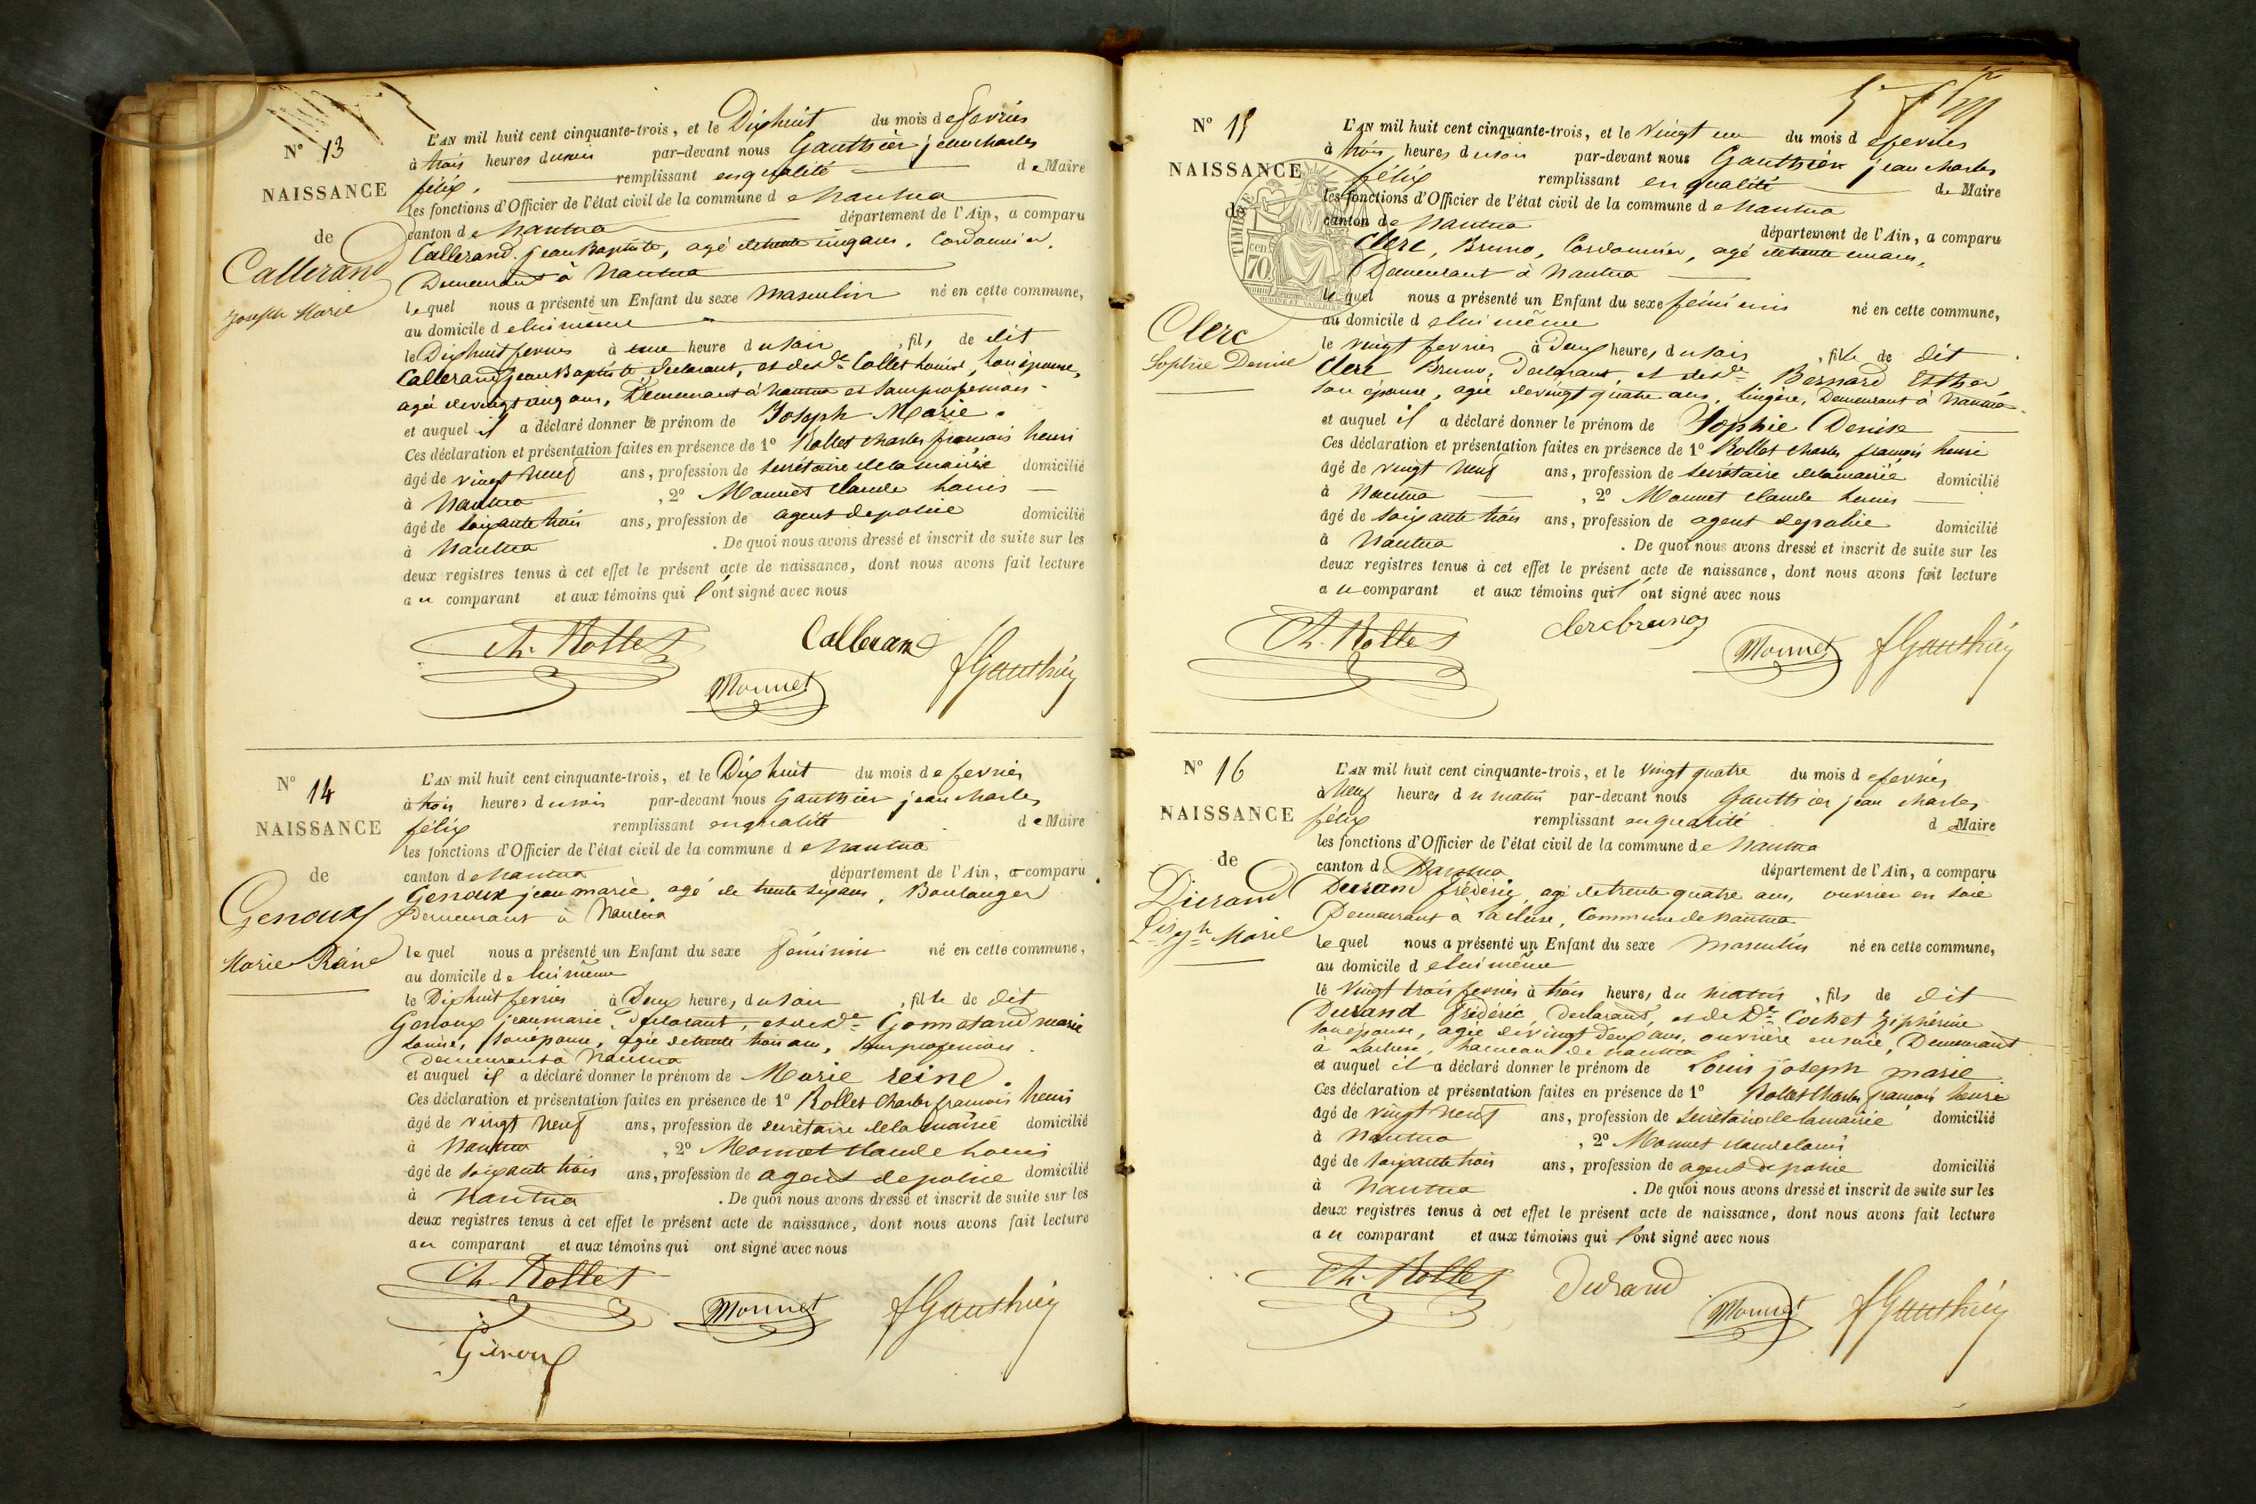 N° 13
NAISSANCE
de
Callerand
Joseph Marie
L'AN mil huit cent cinquante-trois, et le Dix huit du mois de fevrier
à trois heures du soir par-devant nous Gauthier jean charles
félix. remplissant en qualité de Maire
les fonctions d'Officier de l'état civil de la commune de Nantua
canton de Nantua département de l'Ain, a comparu
Callerand jean Baptiste, agé de trente cinq ans, Cordonnier,
Demeurant à Nantua
lequel nous a présenté un Enfant du sexe masculin né en cette commune,
au domicile de lui même
le Dix huit fevrier à une heure du soir, fils de dit
Callerand jean Baptiste declarant, et de de Collet Louise, son épouse,
agée de vingt cinq ans, Demeurant à Nantua et sans profession.
et auquel il a déclaré donner le prénom de Joseph Marie.
Ces déclaration et présentation faites en présence de 1° Rollet charles francois henri
âgé de vingt neuf ans, profession de secrétaire de la mairie domicilié
à Nantua, 2° Monnet claude Louis
âgé de soixante trois ans, profession de agent de police domicilié
à Nantua. De quoi nous avons dressé et inscrit de suite sur les
deux registres tenus à cet effet le présent acte de naissance, dont nous avons fait lecture
au comparant et aux témoins qui l'ont signé avec nous
Ch. Rollet Callerand
Monnet fGauthier
N° 14
NAISSANCE
de
Genoux
Marie Reine
L'AN mil huit cent cinquante-trois, et le Dix huit du mois de fevrier
à trois heures du soir par-devant nous Gauthier jean charles
félix remplissant en qualité de Maire
les fonctions d'Officier de l'état civil de la commune de Nantua
canton de Nantua département de l'Ain, a comparu
Genoux jean marie agé de trente six ans, Boulanger
Demeurant à Nantua
lequel nous a présenté un Enfant du sexe féminin né en cette commune,
au domicile de lui même
le Dix huit fevrier à Deux heures du soir, fille de dit
Genoux jean marie, declarant, et de de Gonnetand marie
Louise, son épouse, agée de trente trois ans, sans profession
demeurant à Nantua
et auquel il a déclaré donner le prénom de Marie reine.
Ces déclaration et présentation faites en présence de 1° Rollet Charles francois henri
âgé de vingt neuf ans, profession de secrétaire de la mairie domicilié
à Nantua, 2° Monnet claude Louis
âgé de soixante trois ans, profession de agent de police domicilié
à Nantua. De quoi nous avons dressé et inscrit de suite sur les
deux registres tenus à cet effet le présent acte de naissance, dont nous avons fait lecture
au comparant et aux témoins qui ont signé avec nous
Ch. Rollet Monnet fGauthier
Genoux
N° 15
NAISSANCE
de
TIMBRE
70
Clerc
Sophie Denise
L'AN mil huit cent cinquante-trois, et le vingt un du mois de fevrier
à trois heures du soir par-devant nous Gauthier jean charles
félix remplissant en qualité de Maire
les fonctions d'Officier de l'état civil de la commune de Nantua
canton de Nantua département de l'Ain, a comparu
Clerc, Bruno, Cordonnier, agé de trente un ans,
Demeurant à Nantua
lequel nous a présenté un Enfant du sexe féminin né en cette commune,
au domicile de lui même
le vingt fevrier à Deux heures du soir, fille de dit
Clerc Bruno, Declarant et de de Bernard Esther,
son épouse, agée de vingt quatre ans, lingère, Demeurant à Nantua.
et auquel il a déclaré donner le prénom de Sophie Denise
Ces déclaration et présentation faites en présence de 1° Rollet charles francois henri
âgé de vingt neuf ans, profession de secrétaire de la mairie domicilié
à Nantua, 2° Monnet claude Louis
âgé de soixante trois ans, profession de agent de police domicilié
à Nantua. De quoi nous avons dressé et inscrit de suite sur les
deux registres tenus à cet effet le présent acte de naissance, dont nous avons fait lecture
au comparant et aux témoins qui l'ont signé avec nous
Ch. Rollet clerc bruno Monnet fGauthier
N° 16
NAISSANCE
de
Durand
Marie
L'AN mil huit cent cinquante-trois, et le vingt quatre du mois de fevrier
à Neuf heures du matin par-devant nous Gauthier jean charles
félix remplissant en qualité de Maire
les fonctions d'Officier de l'état civil de la commune de Nantua
canton de Nantua département de l'Ain, a comparu
Durand frédéric, agé de trente quatre ans, ouvrier en soie
Demeurant à Lacluse, Commune de Nantua.
lequel nous a présenté un Enfant du sexe masculin né en cette commune,
au domicile de lui même
le vingt trois fevrier à trois heures du matin, fils de dit
Durand frédéric, Declarant, et de de Cochet Ziphérine
son épouse, agée de vingt deux ans, ouvrière en soie, Demeurant
à Lacluse, hameau de Nantua
et auquel il a déclaré donner le prénom de Louis joseph marie
Ces déclaration et présentation faites en présence de 1° Rollet Charles francois henri
âgé de vingt neuf ans, profession de secrétaire de la mairie domicilié
à Nantua, 2° Monnet claude louis
âgé de soixante trois ans, profession de agent de police domicilié
à Nantua. De quoi nous avons dressé et inscrit de suite sur les
deux registres tenus à cet effet le présent acte de naissance, dont nous avons fait lecture
au comparant et aux témoins qui l'ont signé avec nous
Ch. Rollet Durand Monnet fGauthier